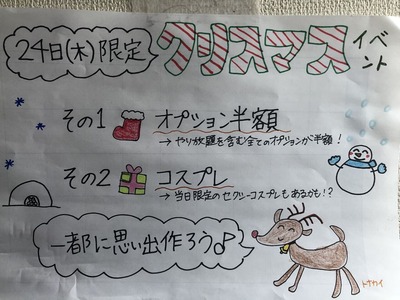 24日(木)限定
クリスマス
イベント
その1 オプション半額
→ やり放題を含む全てのオプションが半額!
その2 コスプレ
→ 当日限定のセクシーコスプレもあるかも!?
一都に思い出作ろう♂
トナカイ